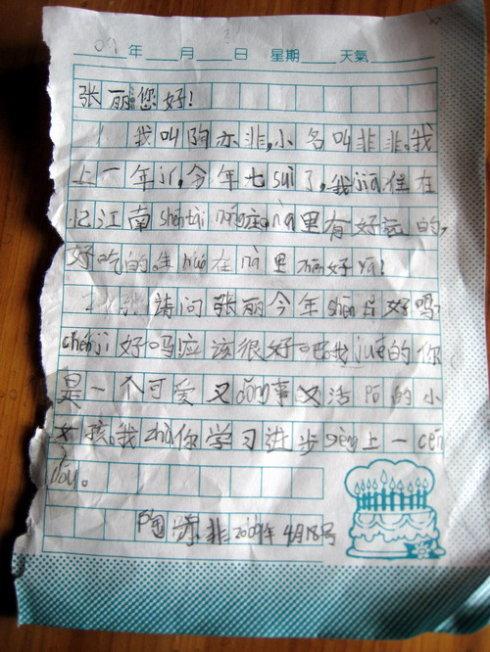 09年 月 日 星期 天氣
张丽您好!
我叫陶亦非,小名叫非非。我
上一年jí,今年七suì了,我jiā住在
江南shēngtài nóng庄,nà里有好玩的,
好吃的。生huó在nà里 好yā!
请问张丽今年shēn 好吗?
chéngjī好吗应该很好吧我jué的你
是一个可爱又dǒng事又活 的小
女孩,我zhù你学习进步gèng上一céng
lóu。
陶 非2009年4月18号